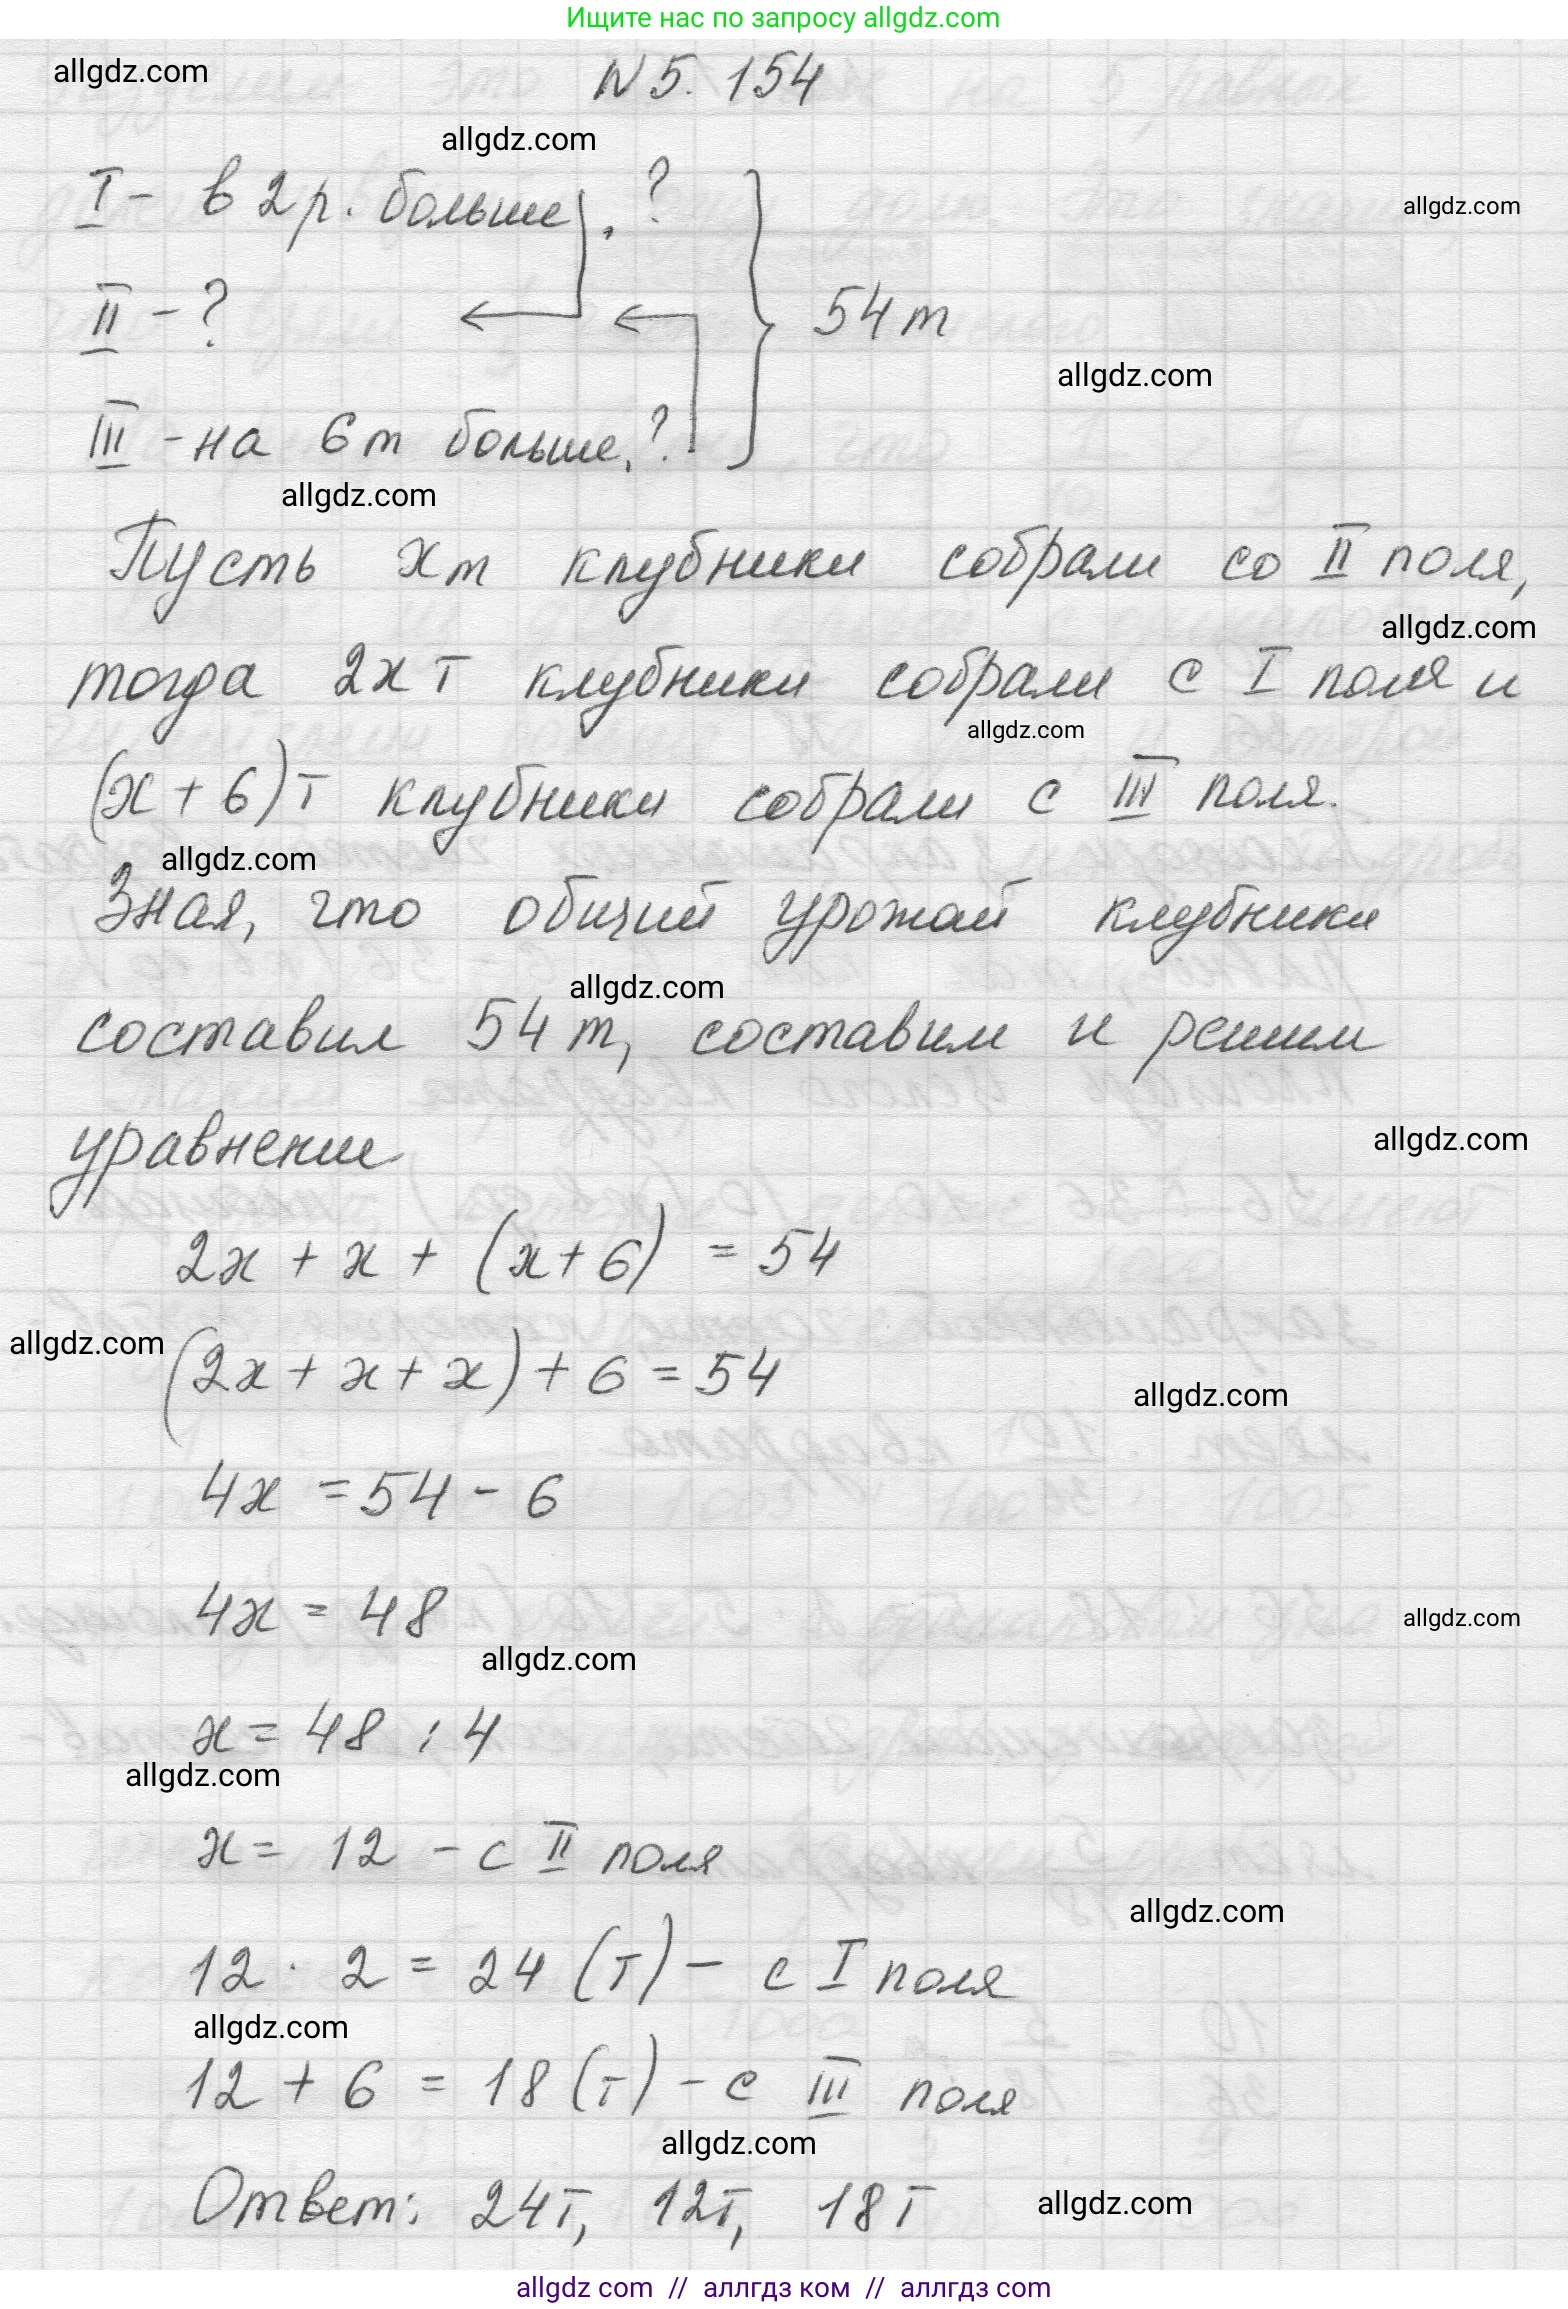 Ищите нас по запросу allgdz.com
allgdz.com
N 5. 154
allgdz.com
I - в 2 р. больше, ?
allgdz.com
II - ?
54 т
allgdz.com
III - на 6 т больше, ?
allgdz.com
Пусть х т клубники собрали со II поля,
allgdz.com
тогда 2х т клубники собрали с I поля и
allgdz.com
(х + 6) т клубники собрали с III поля.
allgdz.com
Зная, что общий урожай клубники
allgdz.com
составил 54 т, составим и решим
allgdz.com
уравнение
2х + х + (х + 6) = 54
allgdz.com
(2х + х + х) + 6 = 54
allgdz.com
4х = 54 - 6
4х = 48
allgdz.com
allgdz.com
х = 48 : 4
allgdz.com
х = 12 - с II поля
allgdz.com
12 · 2 = 24 (т) - с I поля
allgdz.com
12 + 6 = 18 (т) - с III поля
allgdz.com
Ответ: 24т, 12т, 18т
allgdz.com
allgdz com // аллгдз ком // аллгдз com